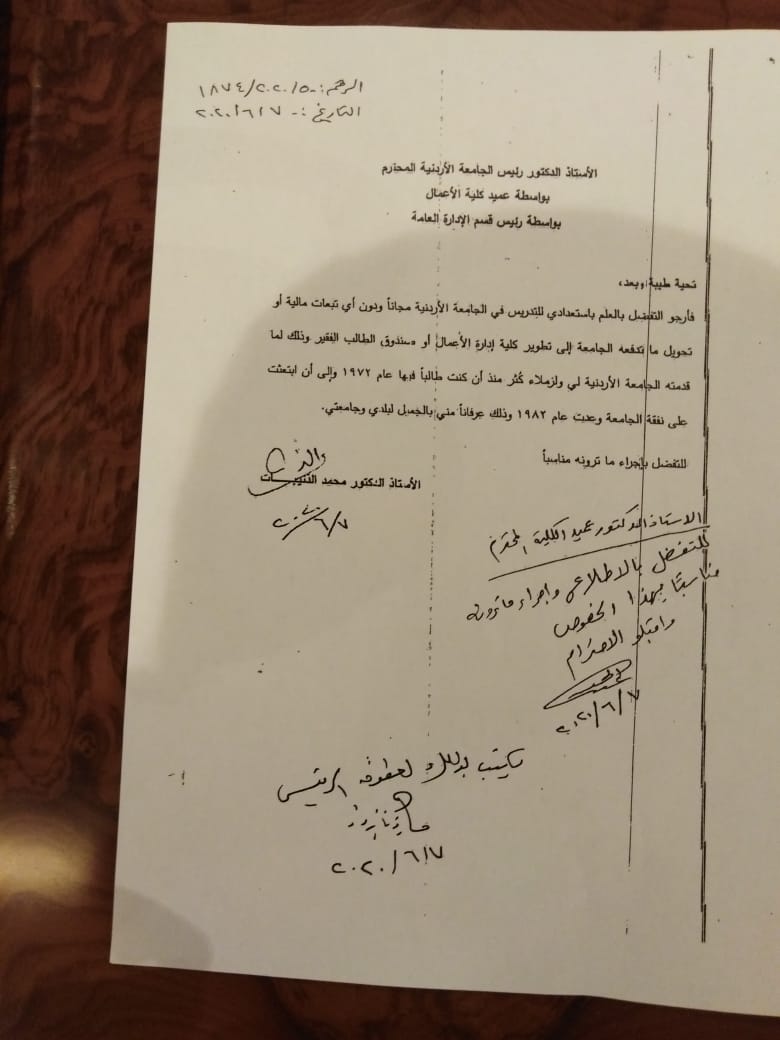 الرقم :- ١٨٧٤/٢٠٢٠/٥
التاريخ :- ٢٠٢٠/٦/٧
الأستاذ الدكتور رئيس الجامعة الأردنية المحترم
بواسطة عميد كلية الأعمال
بواسطة رئيس قسم الإدارة العامة
تحية طيبة وبعد،
فأرجو التفضل بالعلم باستعدادي للتدريس في الجامعة الأردنية مجاناً ودون أي تبعات مالية أو
تحويل ما تدفعه الجامعة إلى تطوير كلية إدارة الأعمال أو صندوق الطالب الفقير وذلك لما
قدمته الجامعة الأردنية لي ولزملاء كُثر منذ أن كنت طالباً فيها عام ١٩٧٢ وإلى أن ابتعثت
على نفقة الجامعة وعدت عام ١٩٨٢ وذلك عرفاناً مني بالجميل لبلدي وجامعتي.
للتفضل بإجراء ما ترونه مناسباً
الأستاذ الدكتور محمد الذنيبات
٢٠٢٠/٦/٧
الاستاذ الدكتور عميد الكلية المحترم
للتفضل بالاطلاع واجراء ما ترونه
مناسبًا بهذا الخصوص
واقبلوا الاحترام
٢٠٢٠/٦/٧
يكتب بذلك لعطوفة الرئيس
٢٠٢٠/٦/٧